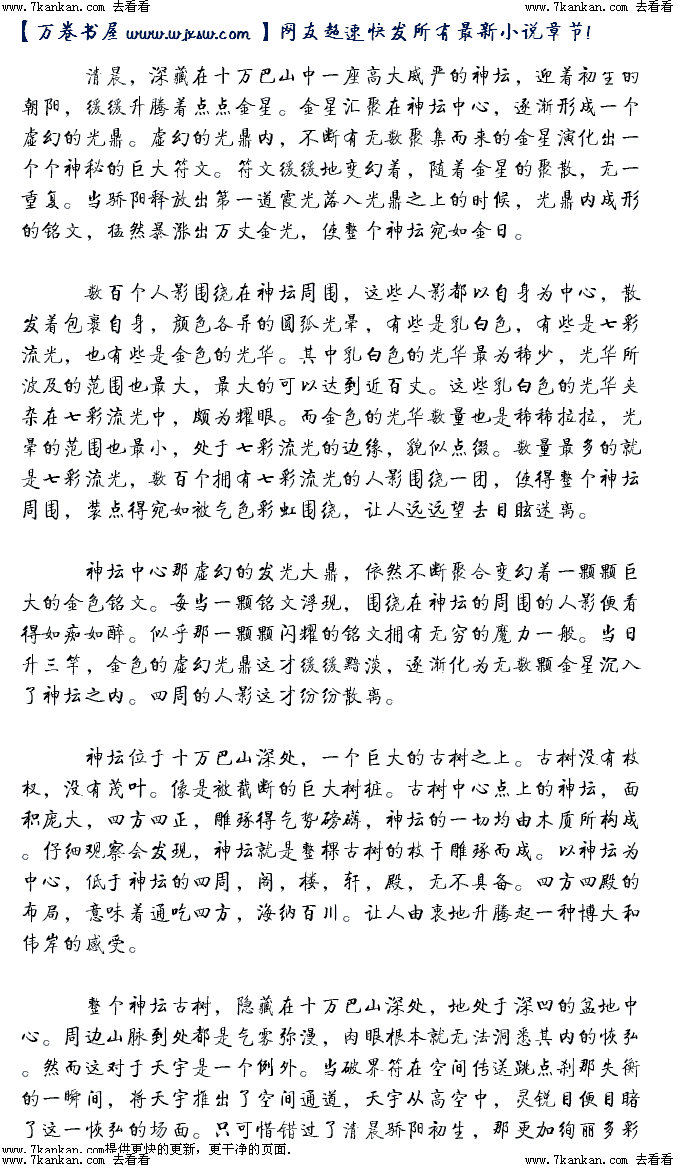 www.7kankan.com 去看看 www.7kankan.com 去看看
【万卷书屋 www.wjxsw.com 】网友超速快发所有最新小说章节!
清晨，深藏在十万巴山中一座高大威严的神坛，迎着初生的
朝阳，缓缓升腾着点点金星。金星汇聚在神坛中心，逐渐形成一个
虚幻的光鼎。虚幻的光鼎内，不断有无数聚集而来的金星演化出一
个个神秘的巨大符文。符文缓缓地变幻着，随着金星的聚散，无一
重复。当骄阳释放出第一道霞光落入光鼎之上的时候，光鼎内成形
的铭文，猛然暴涨出万丈金光，使整个神坛宛如金日。
数百个人影围绕在神坛周围，这些人影都以自身为中心，散
发着包裹自身，颜色各异的圆弧光晕，有些是乳白色，有些是七彩
流光，也有些是金色的光华。其中乳白色的光华最为稀少，光华所
波及的范围也最大，最大的可以达到近百丈。这些乳白色的光华夹
杂在七彩流光中，颇为耀眼。而金色的光华数量也是稀稀拉拉，光
晕的范围也最小，处于七彩流光的边缘，貌似点缀。数量最多的就
是七彩流光，数百个拥有七彩流光的人影围绕一团，使得整个神坛
周围，装点得宛如被气色彩虹围绕，让人远远望去目眩迷离。
神坛中心那虚幻的发光大鼎，依然不断聚合变幻着一颗颗巨
大的金色铭文。每当一颗铭文浮现，围绕在神坛的周围的人影便看
得如痴如醉。似乎那一颗颗闪耀的铭文拥有无穷的魔力一般。当日
升三竿，金色的虚幻光鼎这才缓缓黯淡，逐渐化为无数颗金星沉入
了神坛之内。四周的人影这才纷纷散离。
神坛位于十万巴山深处，一个巨大的古树之上。古树没有枝
杈，没有茂叶。像是被截断的巨大树桩。古树中心点上的神坛，面
积庞大，四方四正，雕琢得气势磅礴，神坛的一切均由木质所构成
。仔细观察会发现，神坛就是整棵古树的枝干雕琢而成。以神坛为
中心，低于神坛的四周，阁，楼，轩，殿，无不具备。四方四殿的
布局，意味着通吃四方，海纳百川。让人由衷地升腾起一种博大和
伟岸的感受。
整个神坛古树，隐藏在十万巴山深处，地处于深凹的盆地中
心。周边山脉到处都是气雾弥漫，肉眼根本就无法洞悉其内的恢弘
。然而这对于天宇是一个例外。当破界符在空间传送跳点刹那失衡
的一瞬间，将天宇推出了空间通道，天宇从高空中，灵锐目便目睹
了这一恢弘的场面。只可惜错过了清晨骄阳初生，那更加绚丽多彩
www.7kankan.com提供更快的更新，更干净的页面. www.7kankan.com 去看看